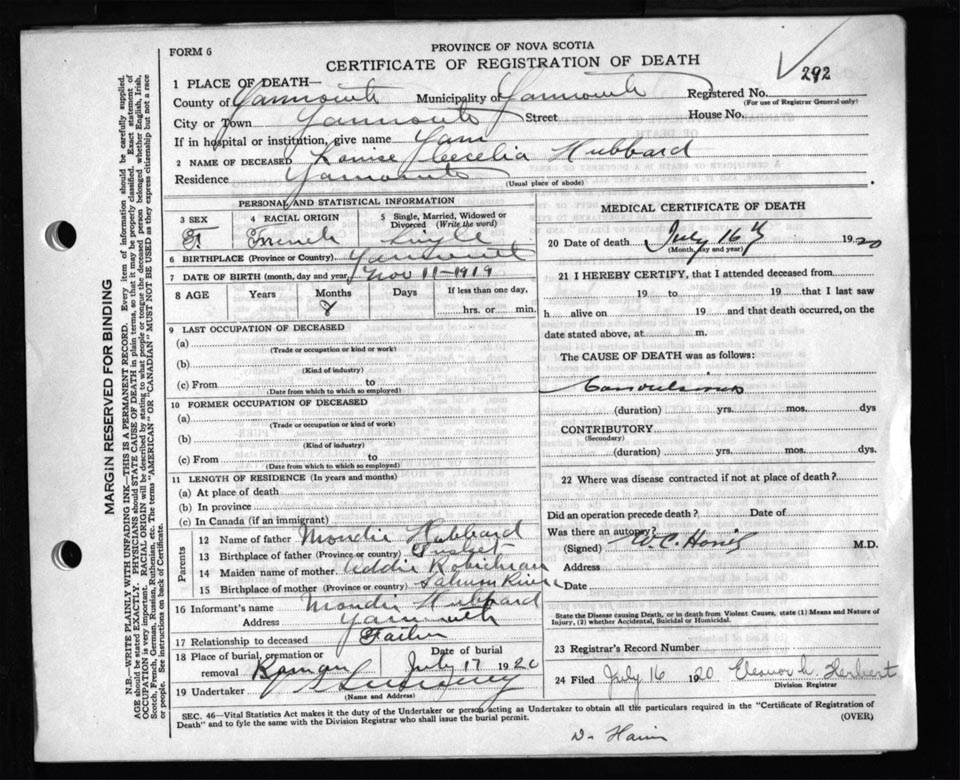 FORM 6
PROVINCE OF NOVA SCOTIA
CERTIFICATE OF REGISTRATION OF DEATH
292
1 PLACE OF DEATH—
County of Yarmouth Municipality of Yarmouth Registered No.
(For use of Registrar General only)
City or Town Yarmouth Street House No.
If in hospital or institution, give name Yarm
2 NAME OF DECEASED Louise Cecelia Hubbard
Residence Yarmouth
(Usual place of abode)
PERSONAL AND STATISTICAL INFORMATION
3 SEX 4 RACIAL ORIGIN 5 Single, Married, Widowed or Divorced (Write the word)
F. French Single
6 BIRTHPLACE (Province or Country) Yarmouth
7 DATE OF BIRTH (month, day and year) Nov 11-1919
8 AGE Years Months Days If less than one day,
8 hrs. or min.
9 LAST OCCUPATION OF DECEASED
(a)
(Trade or occupation or kind or work)
(b)
(Kind of industry)
(c) From to
(Date from which to which so employed)
10 FORMER OCCUPATION OF DECEASED
(a)
(Trade or occupation or kind of work)
(b)
(Kind of industry)
(c) From to
(Date from which to which so employed)
11 LENGTH OF RESIDENCE (In years and months)
(a) At place of death
(b) In province
(c) In Canada (if an immigrant)
Parents
12 Name of father Mondie Hubbard
13 Birthplace of father (Province or country) Tusket
14 Maiden name of mother Addie Robicheau
15 Birthplace of mother (Province or country) Salmon River
16 Informant's name Mondie Hubbard
Address Yarmouth
17 Relationship to deceased Father
18 Place of burial, cremation or removal Date of burial
Roman July 17 1920
19 Undertaker Sweeney
(Name and Address)
MEDICAL CERTIFICATE OF DEATH
20 Date of death July 16th 1920
(Month, day and year)
21 I HEREBY CERTIFY, that I attended deceased from
19 to 19 that I last saw
h alive on 19 and that death occurred, on the
date stated above, at m.
The CAUSE OF DEATH was as follows:
Convulsions
(duration) yrs. mos. dys
CONTRIBUTORY
(Secondary)
(duration) yrs. mos. dys.
22 Where was disease contracted if not at place of death?
Did an operation precede death? Date of
Was there an autopsy?
(Signed) W. C. M.D.
Address
Date
State the Disease causing Death, or in death from Violent Causes, state (1) Means and Nature of
Injury, (2) whether Accidental, Suicidal or Homicidal.
23 Registrar's Record Number
24 Filed July 16 1920 Eleanor L. Herbert
Division Registrar
SEC. 46—Vital Statistics Act makes it the duty of the Undertaker or person acting as Undertaker to obtain all the particulars required in the "Certificate of Registration of
Death" and to fyle the same with the Division Registrar who shall issue the burial permit.
(OVER)
MARGIN RESERVED FOR BINDING
N.B.—WRITE PLAINLY WITH UNFADING INK—THIS IS A PERMANENT RECORD. Every item of information should be carefully supplied.
AGE should be stated EXACTLY. PHYSICIANS should STATE CAUSE OF DEATH in plain terms, so that it may be properly classified. Exact statement of
OCCUPATION is very important. RACIAL ORIGIN will be described by stating to what people or tongue the deceased person belonged whether English, Irish,
Scotch, French, German, Russian, Ruthenian, etc. The terms "AMERICAN" or "CANADIAN" MUST NOT BE USED as they express citizenship but not a race
or people. See instructions on back of Certificate.